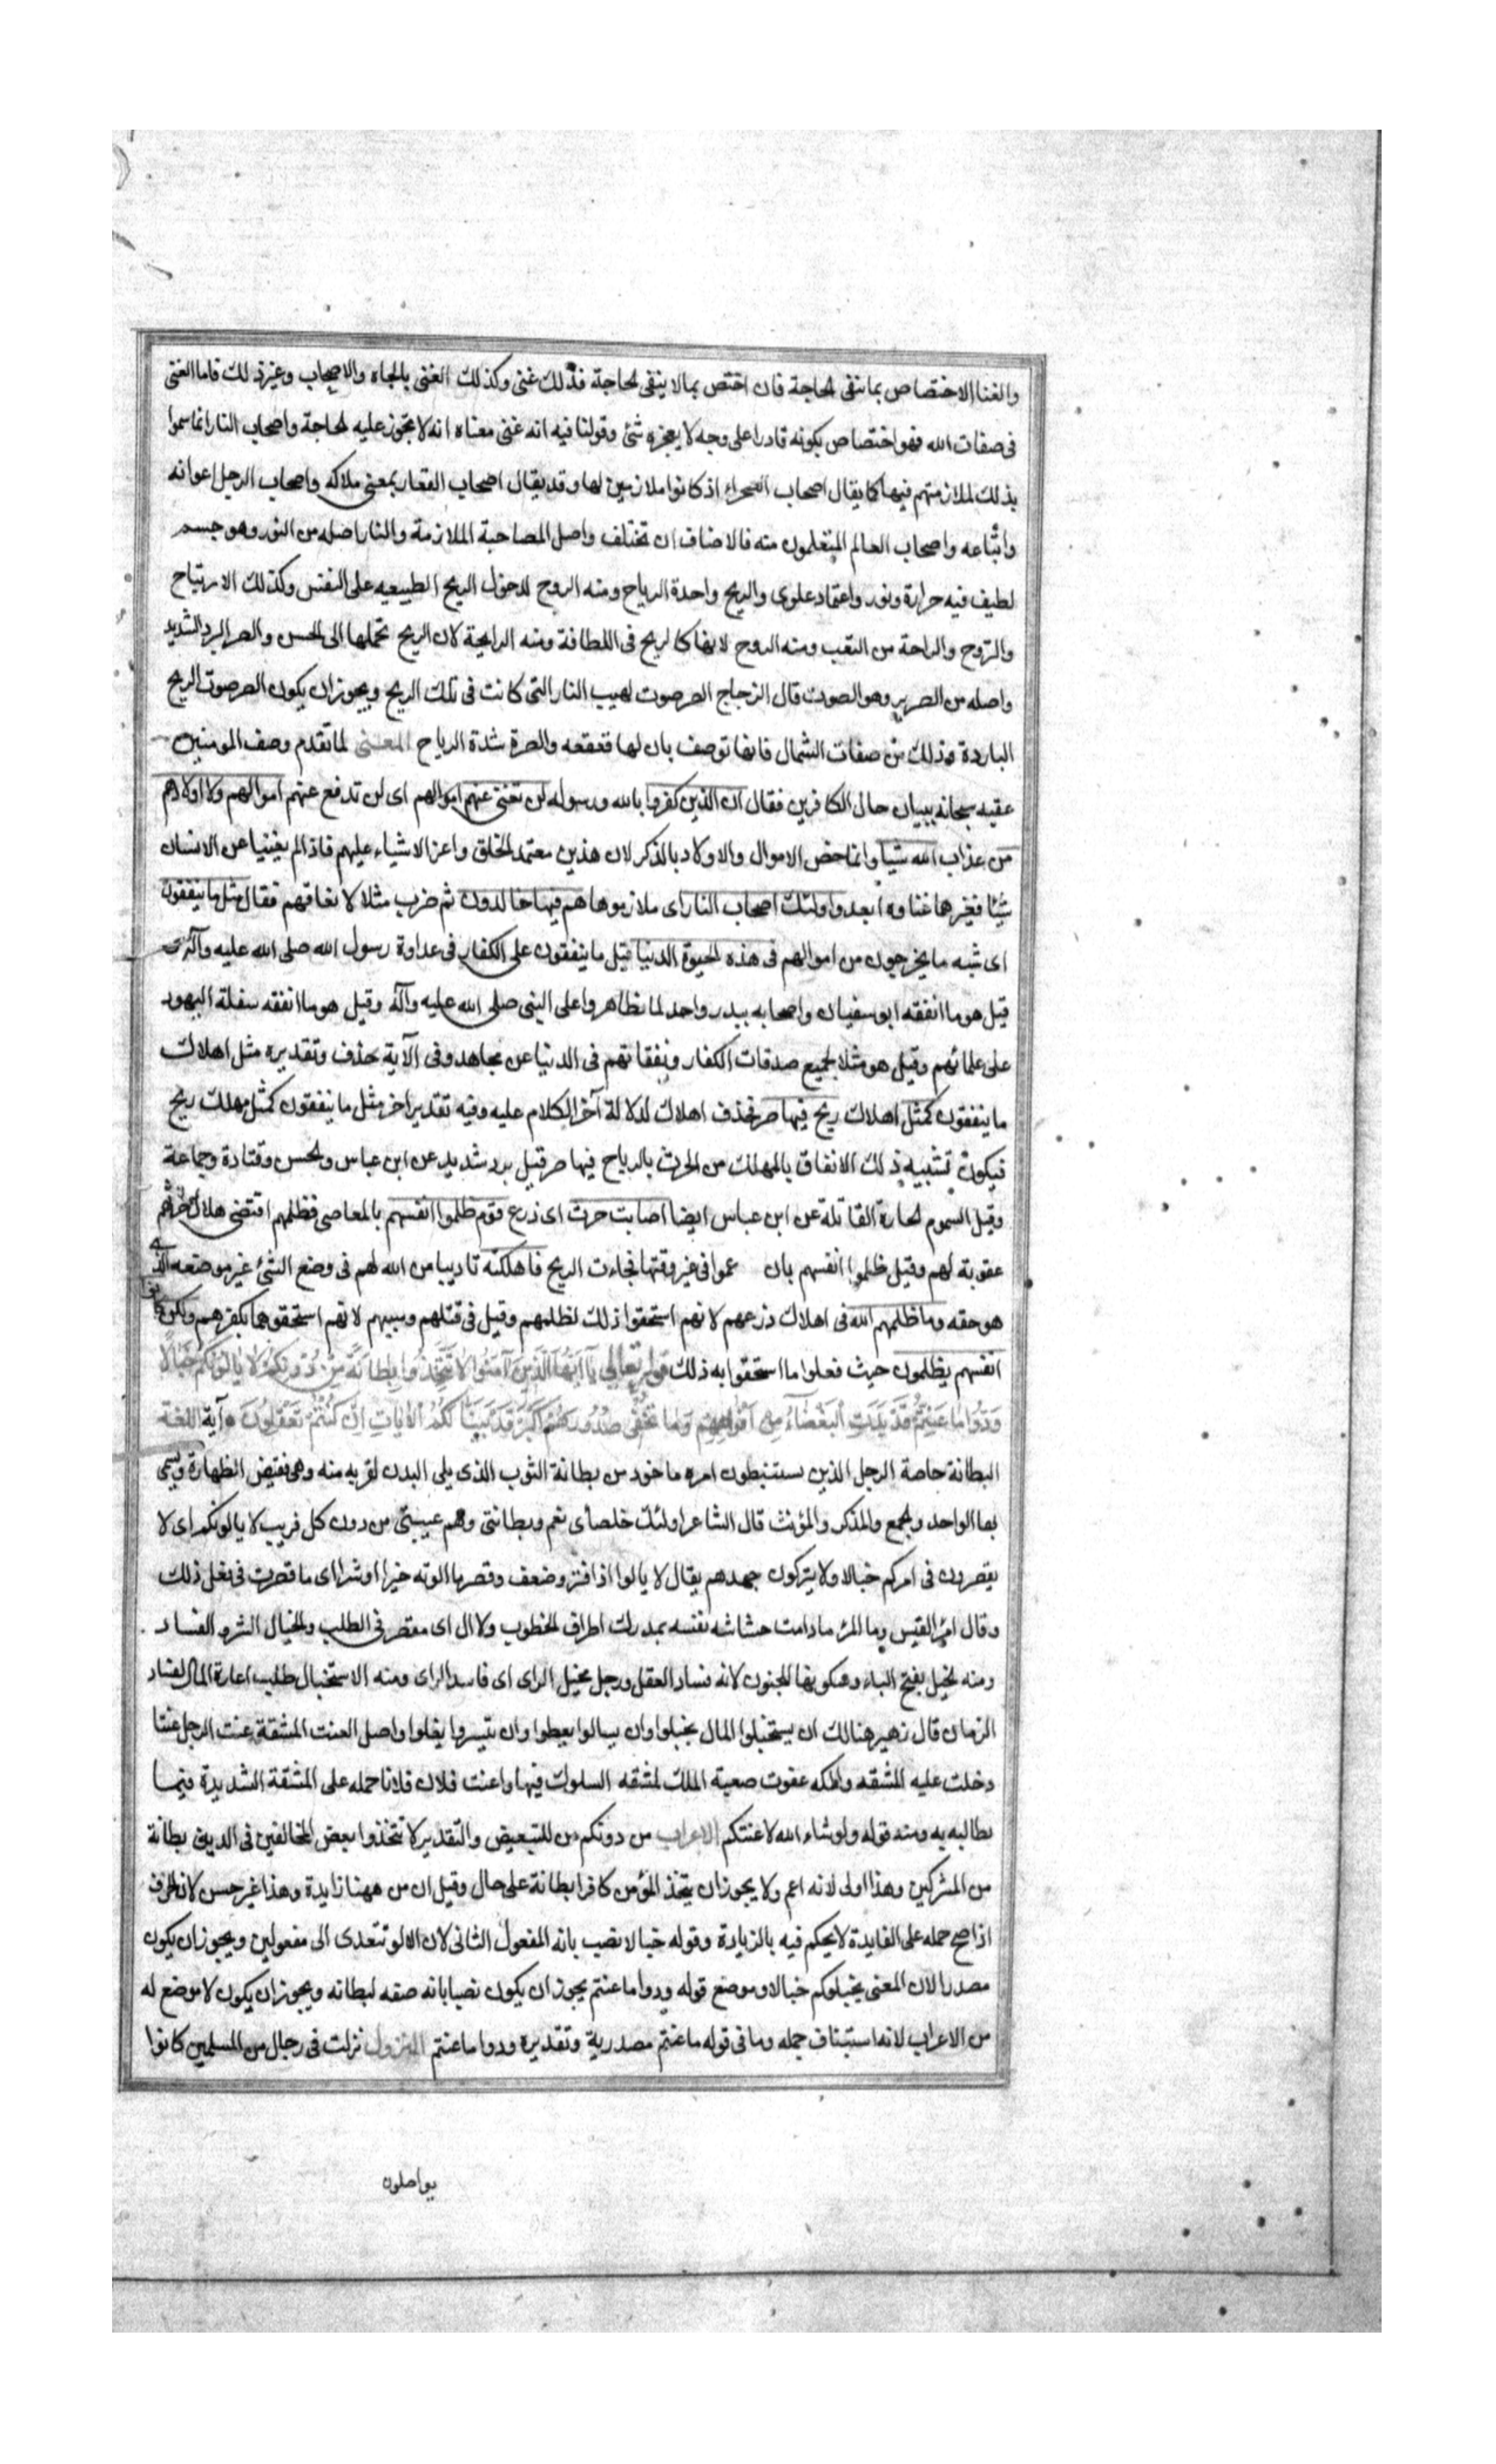 والغنا الاختصاص بما ينفى الحاجة فان اختص بمالا ينفى الحاجة فذلك غنى وكذلك الغنى بالجاه والاصحاب وغير ذلك فاما الغنى
فى صفات الله فهو اختصاص بكونه قادرا على وجه لا يعجزه شئ وقولنا فيه انه غنى معناه انه لا تجوز عليه الحاجة واصحاب النار انما سموا
بذلك لملازمتهم فيها كما يقال اصحاب الصحراء اذ كانوا ملازمين لها وقد يقال اصحاب العقار بمعنى ملاكه واصحاب الرجل اعوانه
واتباعه واصحاب العالم المتعلمون منه فالاضافات تختلف واصل المصاحبة الملازمة والنار اصله من النور وهو جسم
لطيف فيه حرارة ونور واعتماد علوى والريح واحدة الرياح ومنه الروح لدخول الريح الطبيعيه على النفس وكذلك الارتياح
والتروح والراحة من التعب ومنه الروح لانها كالريح فى اللطافة ومنه الرايحة لان الريح تحملها الى الحس والصر البرد الشديد
واصله من الصرير وهو الصوت قال الزجاج الصر صوت لهيب النار التى كانت فى تلك الريح ويجوز ان يكون الصر صوت الريح
الباردة وذلك من صفات الشمال فانها توصف بان لها قعقعه والصرة شدة الرياح المعنى لما تقدم وصف المومنين
عقبه سبحانه ببيان حال الكافرين فقال ان الذين كفروا بالله ورسوله لن تغنى عنهم اموالهم اى لن تدفع عنهم اموالهم ولا اولادهم
من عذاب الله شيا وانما خص الاموال والاولاد بالذكر لان هذين معتمد الخلق واعز الاشياء عليهم فاذا لم يغنيا عن الانسان
شيئا فغيرها غناوه ابعد واولئك اصحاب النار اى ملازموها هم فيها خالدون ثم ضرب مثلا لانفاقهم فقال مثل ما ينفقون
اى شبه ما يخرجون من اموالهم فى هذه الحيوة الدنيا قيل ما ينفقون على الكفار فى عداوة رسول الله صلى الله عليه وآله
قيل هو ما انفقه ابو سفيان واصحابه ببدر واحد لما تظاهروا على النبى صلى الله عليه وآله وقيل هو ما انفقه سفلة اليهود
على علمائهم وقيل هو مثلا لجميع صدقات الكفار ونفقاتهم فى الدنيا عن مجاهد وفى الآية حذف وتقديره مثل اهلاك
ما ينفقون كمثل اهلاك ريح فيها صر فحذف اهلاك لدلالة آخر الكلام عليه وفيه تقدير اخر مثل ما ينفقون كمثل مهلك ريح
فيكون تشبيه ذلك الانفاق بالمهلك من الحرث بالرياح فيها صر قيل برد شديد عن ابن عباس والحسن وقتادة وجماعة
وقيل السموم الحارة القاتلة عن ابن عباس ايضا اصابت حرث اى زرع قوم ظلموا انفسهم بالمعاصى فظلمهم اقتضى هلاك حرثهم
عقوبة لهم وقيل ظلموا انفسهم بان عموا فى غير وقتها فجاءت الريح فاهلكته تاديبا من الله لهم فى وضع الشئ غير موضعه الذى
هو حقه وما ظلمهم الله فى اهلاك زرعهم لانهم استحقوا ذلك لظلمهم وقيل فى قتلهم وسبيهم لانهم استحقوهما بكفرهم ولكن كانوا
انفسهم يظلمون حيث فعلوا ما استحقوا به ذلك قوله تعالى يَا اَيُّهَا الَّذِينَ آمَنُوا لَا تَتَّخِذُوا بِطَانَةً مِّنْ دُونِكُمْ لَا يَالُونَكُمْ خَبَالًا
وَدُّوا مَا عَنِتُّمْ قَدْ بَدَتِ الْبَغْضَاءُ مِنْ اَفْوَاهِهِمْ وَمَا تُخْفِى صُدُورُهُمْ اَكْبَرُ قَدْ بَيَّنَّا لَكُمُ الْآيَاتِ اِنْ كُنْتُمْ تَعْقِلُونَ آية اللغة
البطانة خاصة الرجل الذين يستنبطون امره ماخوذ من بطانة الثوب الذى يلى البدن لقربه منه وهى نقيض الظهارة ويسمى
بها الواحد والجمع والمذكر والمؤنث قال الشاعر اولئك خلصأى نعم وبطانتى وهم عيبتى من دون كل قريب لا يالونكم اى لا
يقصرون فى امركم خبالا ولا يتركون جهدهم يقال لا يالوا اذا فتر وضعف وقصر ما الوته خيرا او شرا اى ما قصرت فى فعل ذلك
وقال امرؤ القيس وما المرء ما دامت حشاشه نفسه بمدرك اطراف الخطوب ولا ال اى مقصر فى الطلب والخبال الشر والفساد
ومنه الخبل بفتح الباء وسكونها للجنون لانه فساد العقل ورجل مخبل الراى اى فاسد الراى ومنه الاستخبال طلب اعارة المال لفساد
الزمان قال زهير هنالك ان يستخبلوا المال يخبلوا وان يسالوا يعطوا وان ييسروا يغلوا واصل العنت المشقة عنت الرجل عنتا
دخلت عليه المشقه واكمه عنوت صعبة المسلك لمشقه السلوك فيها واعنت فلان فلانا حمله على المشقة الشديدة فيما
يطالبه به ومنه قوله ولو شاء الله لاعنتكم الاعراب من دونكم من للتبعيض والتقدير لا تتخذوا بعض المخالفين فى الدين بطانة
من المشركين وهذا اولى لانه اعم ولا يجوز ان يتخذ المؤمن كافرا بطانة على حال وقيل ان من ههنا زايدة وهذا غير حسن لان الحرف
اذا صح حمله على الفايدة لا يحكم فيه بالزيادة وقوله خبالا نصب بانه المفعول الثانى لان الالو تتعدى الى مفعولين ويجوز ان يكون
مصدرا لان المعنى يخبلوكم خبالا وموضع قوله ودوا ما عنتم يجوز ان يكون نصبا بانه صفه لبطانه ويجوز ان يكون لا موضع له
من الاعراب لانه استيناف جمله وما فى قوله ما عنتم مصدرية وتقديره ودوا ما عنتم النزول نزلت فى رجال من المسلمين كانوا
يواصلون